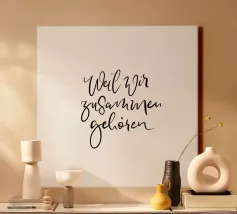 Weil Wir
zusammen
gehören